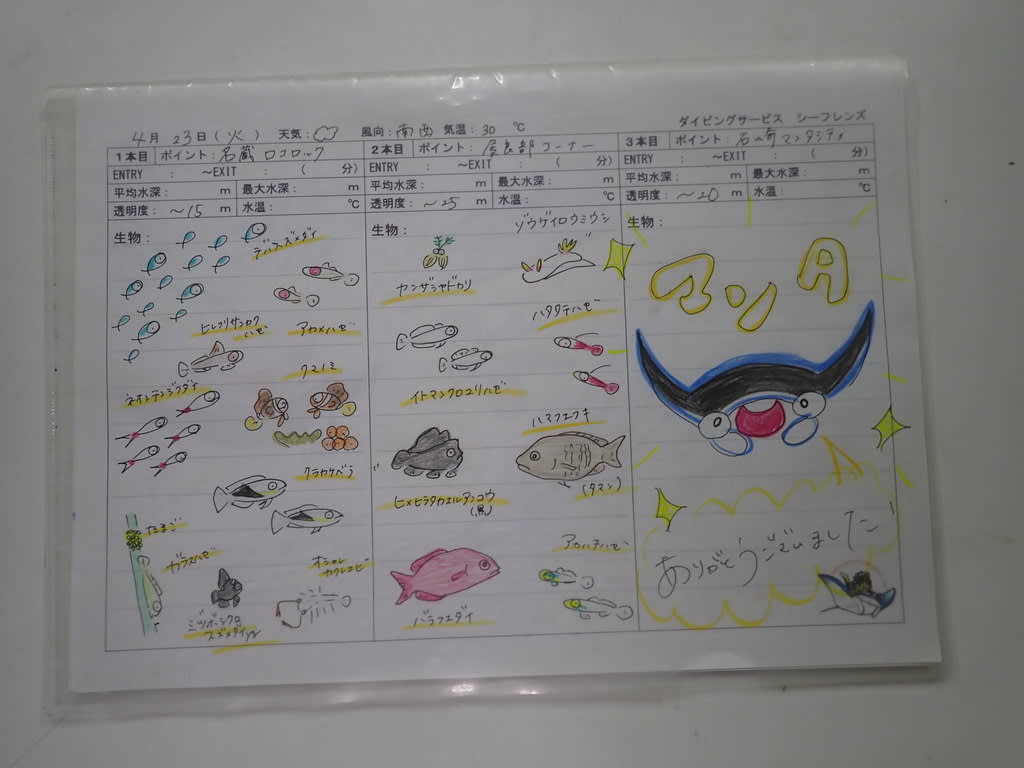 ダイビングサービス シーフレンズ
4月 23日(火) 天気: 風向:南西 気温:30 ℃
1本目 ポイント:名蔵ロコロック
ENTRY : ～EXIT : ( 分)
平均水深: m 最大水深: m
透明度:～15 m 水温: ℃
生物:
デバスズメダイ
ヒレフリサンカクハゼ
アカメハゼ
クマノミ
ネオンテンジクダイ
クラカケベラ
たまご
ガラスハゼ
ミツボシクロスズメダイyg
オドリカクレエビ
2本目 ポイント:屋良部コーナー
ENTRY : ～EXIT : ( 分)
平均水深: m 最大水深: m
透明度:～25 m 水温: ℃
生物:
ゾウゲイロウミウシ
ヤンザシヤドカリ
ハタタテハゼ
イトマンクロユリハゼ
ハマフエフキ
(タマン)
ヒメヒラタカエルアンコウ
(黒)
アカハチハゼ
バラフエダイ
3本目 ポイント:石崎マンタシティ
ENTRY : ～EXIT : ( 分)
平均水深: m 最大水深: m
透明度:～20 m 水温: ℃
生物:
マンタ
ありがとうございました!